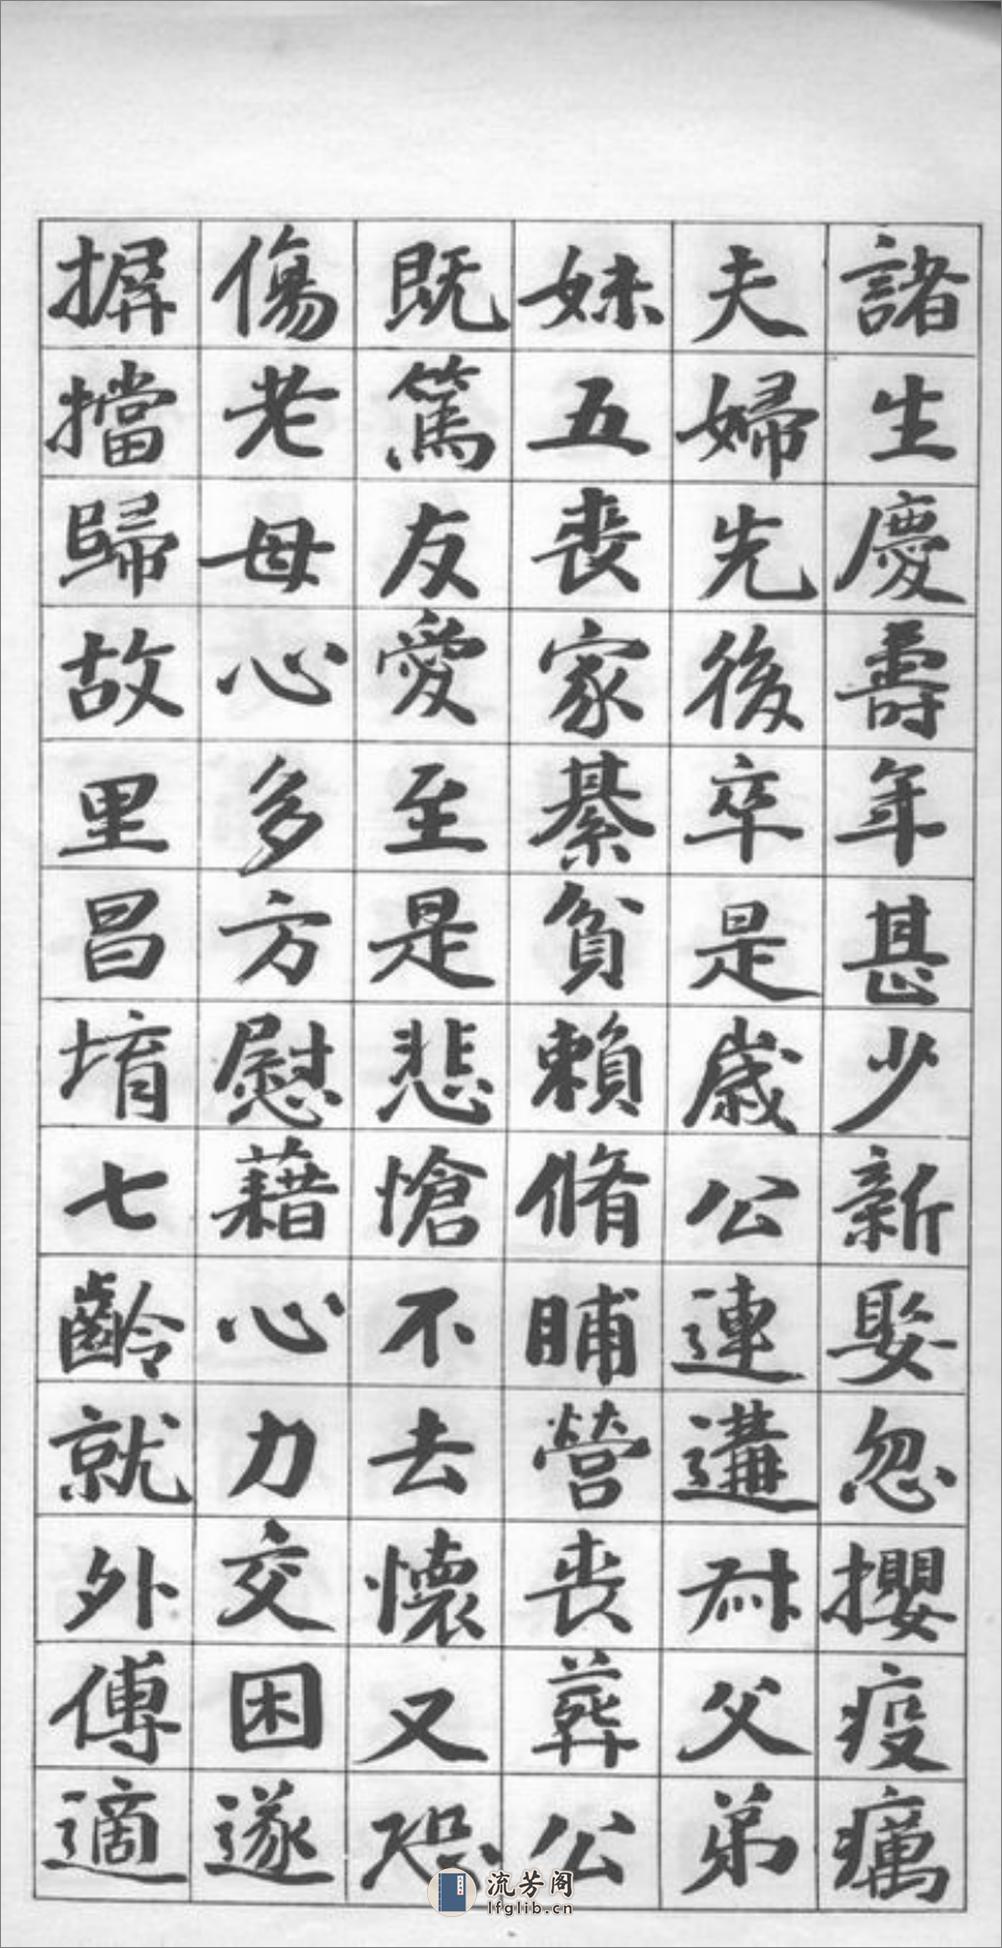 諸生慶壽年甚少新娶忽攖疫癘
夫婦先後卒是歲公連遘耐父弟
妹五喪家綦貧賴脩脯營喪葬公
既篤友愛至是悲愴不去懷又恐
傷老母心多方慰藉心力交困遂
摒擋歸故里昌堉七齡就外傅適
流芳阁
lfglib.cn